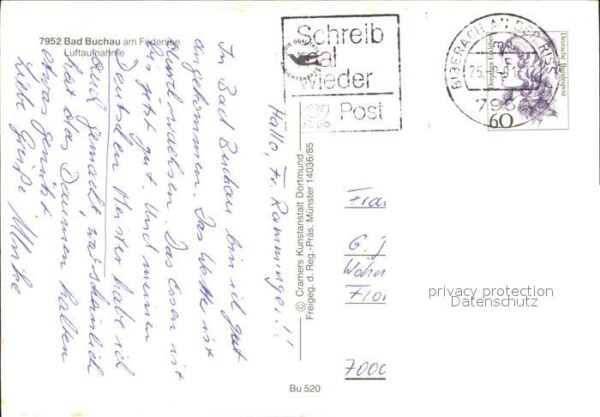 7952 Bad Buchau am Federsee
Luftaufnahme
Hallo, Fr. Ramminger!!
In Bad Buchau bin ich gut
angekommen. Das Wetter ist
durchwachsen. Das Essen ist
bis jetzt gut. Und meinen
Deutschen Meister habe ich
auch gemacht, wahrscheinlich
hat das Daumen halten
etwas genützt.
Liebe Grüße
© Cramers Kunstanstalt Dortmund
Freigeg. d. Reg.-Präs. Münster 14036/85
Bu 520
Schreib
mal
wieder
Post
BIBERACH AN DER RISS
795
Deutsche Bundespost
60
Frau
G. J
Wohn
Flor
7000
privacy protection
Datenschutz